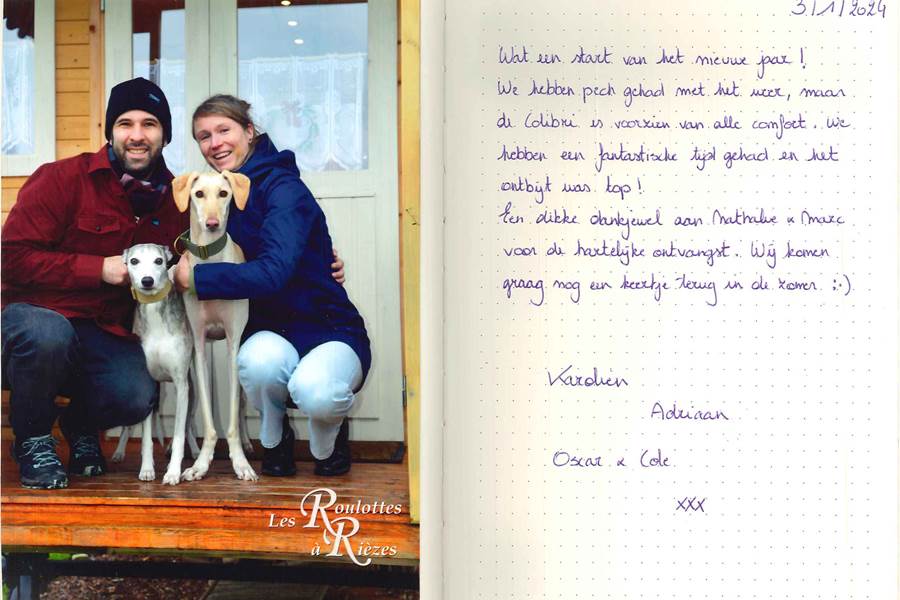 Les Roulottes
à Rièzes
3/1/2024
Wat een start van het nieuwe jaar!
We hebben pech gehad met het weer, maar
de Colibri is voorzien van alle comfort. We
hebben een fantastische tijd gehad en het
ontbijt was top!
Een dikke dankjewel aan Nathalie & Marc
voor de hartelijke ontvangst. Wij komen
graag nog een keertje terug in de zomer. :-)
Karolien
Adriaan
Oscar & Cole
xxx